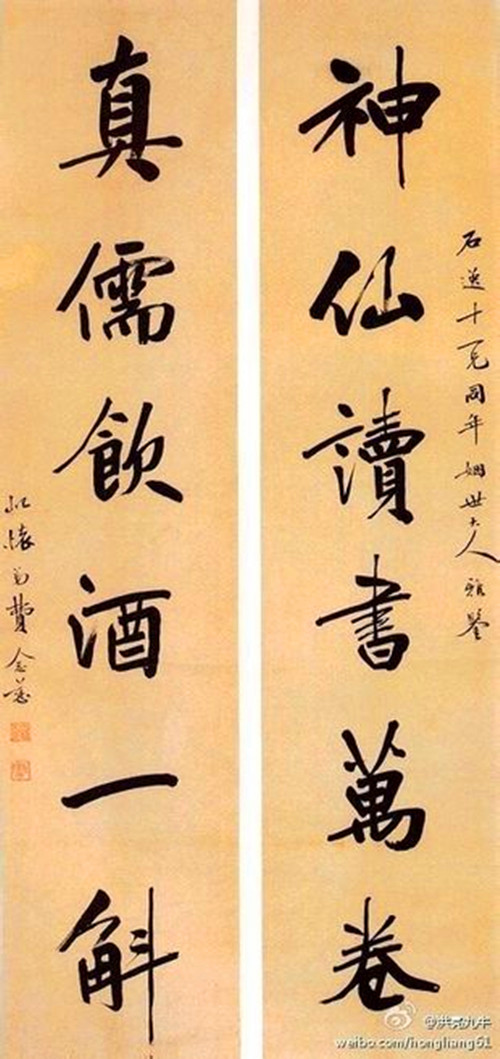 石蓮十一兄同年姻世大人雅鑒
神仙讀書萬卷
真儒飲酒一斛
屺懷弟費念慈
@洪亮九牛
weibo.com/hongliang61